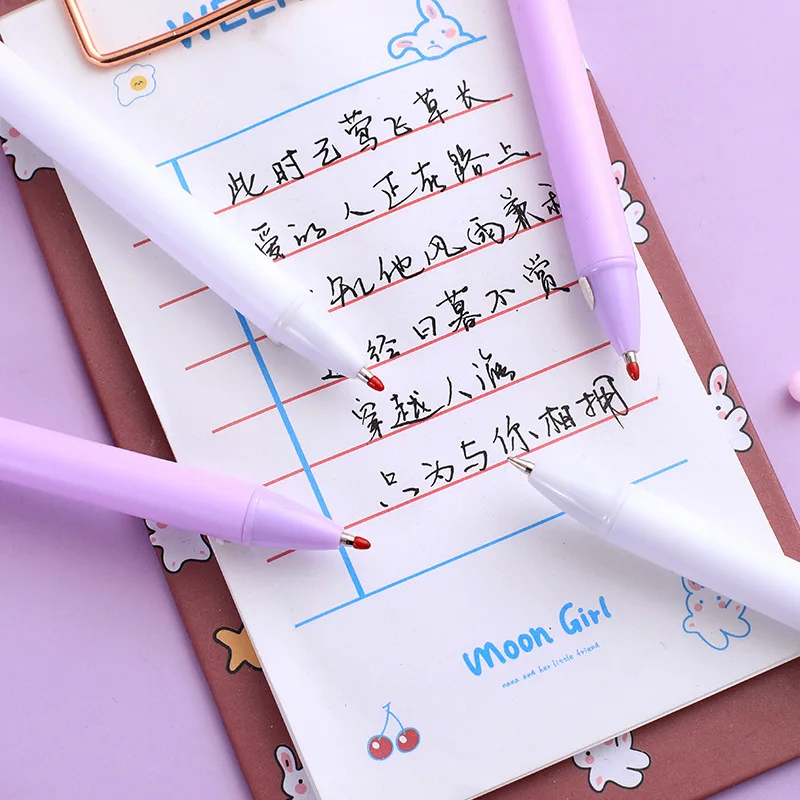 WEE
此时元莺飞草长
爱的人正在路上
知他风雨兼
途经日暮不赏
穿越人海
只为与你相拥
moon Girl
nana and her little friend